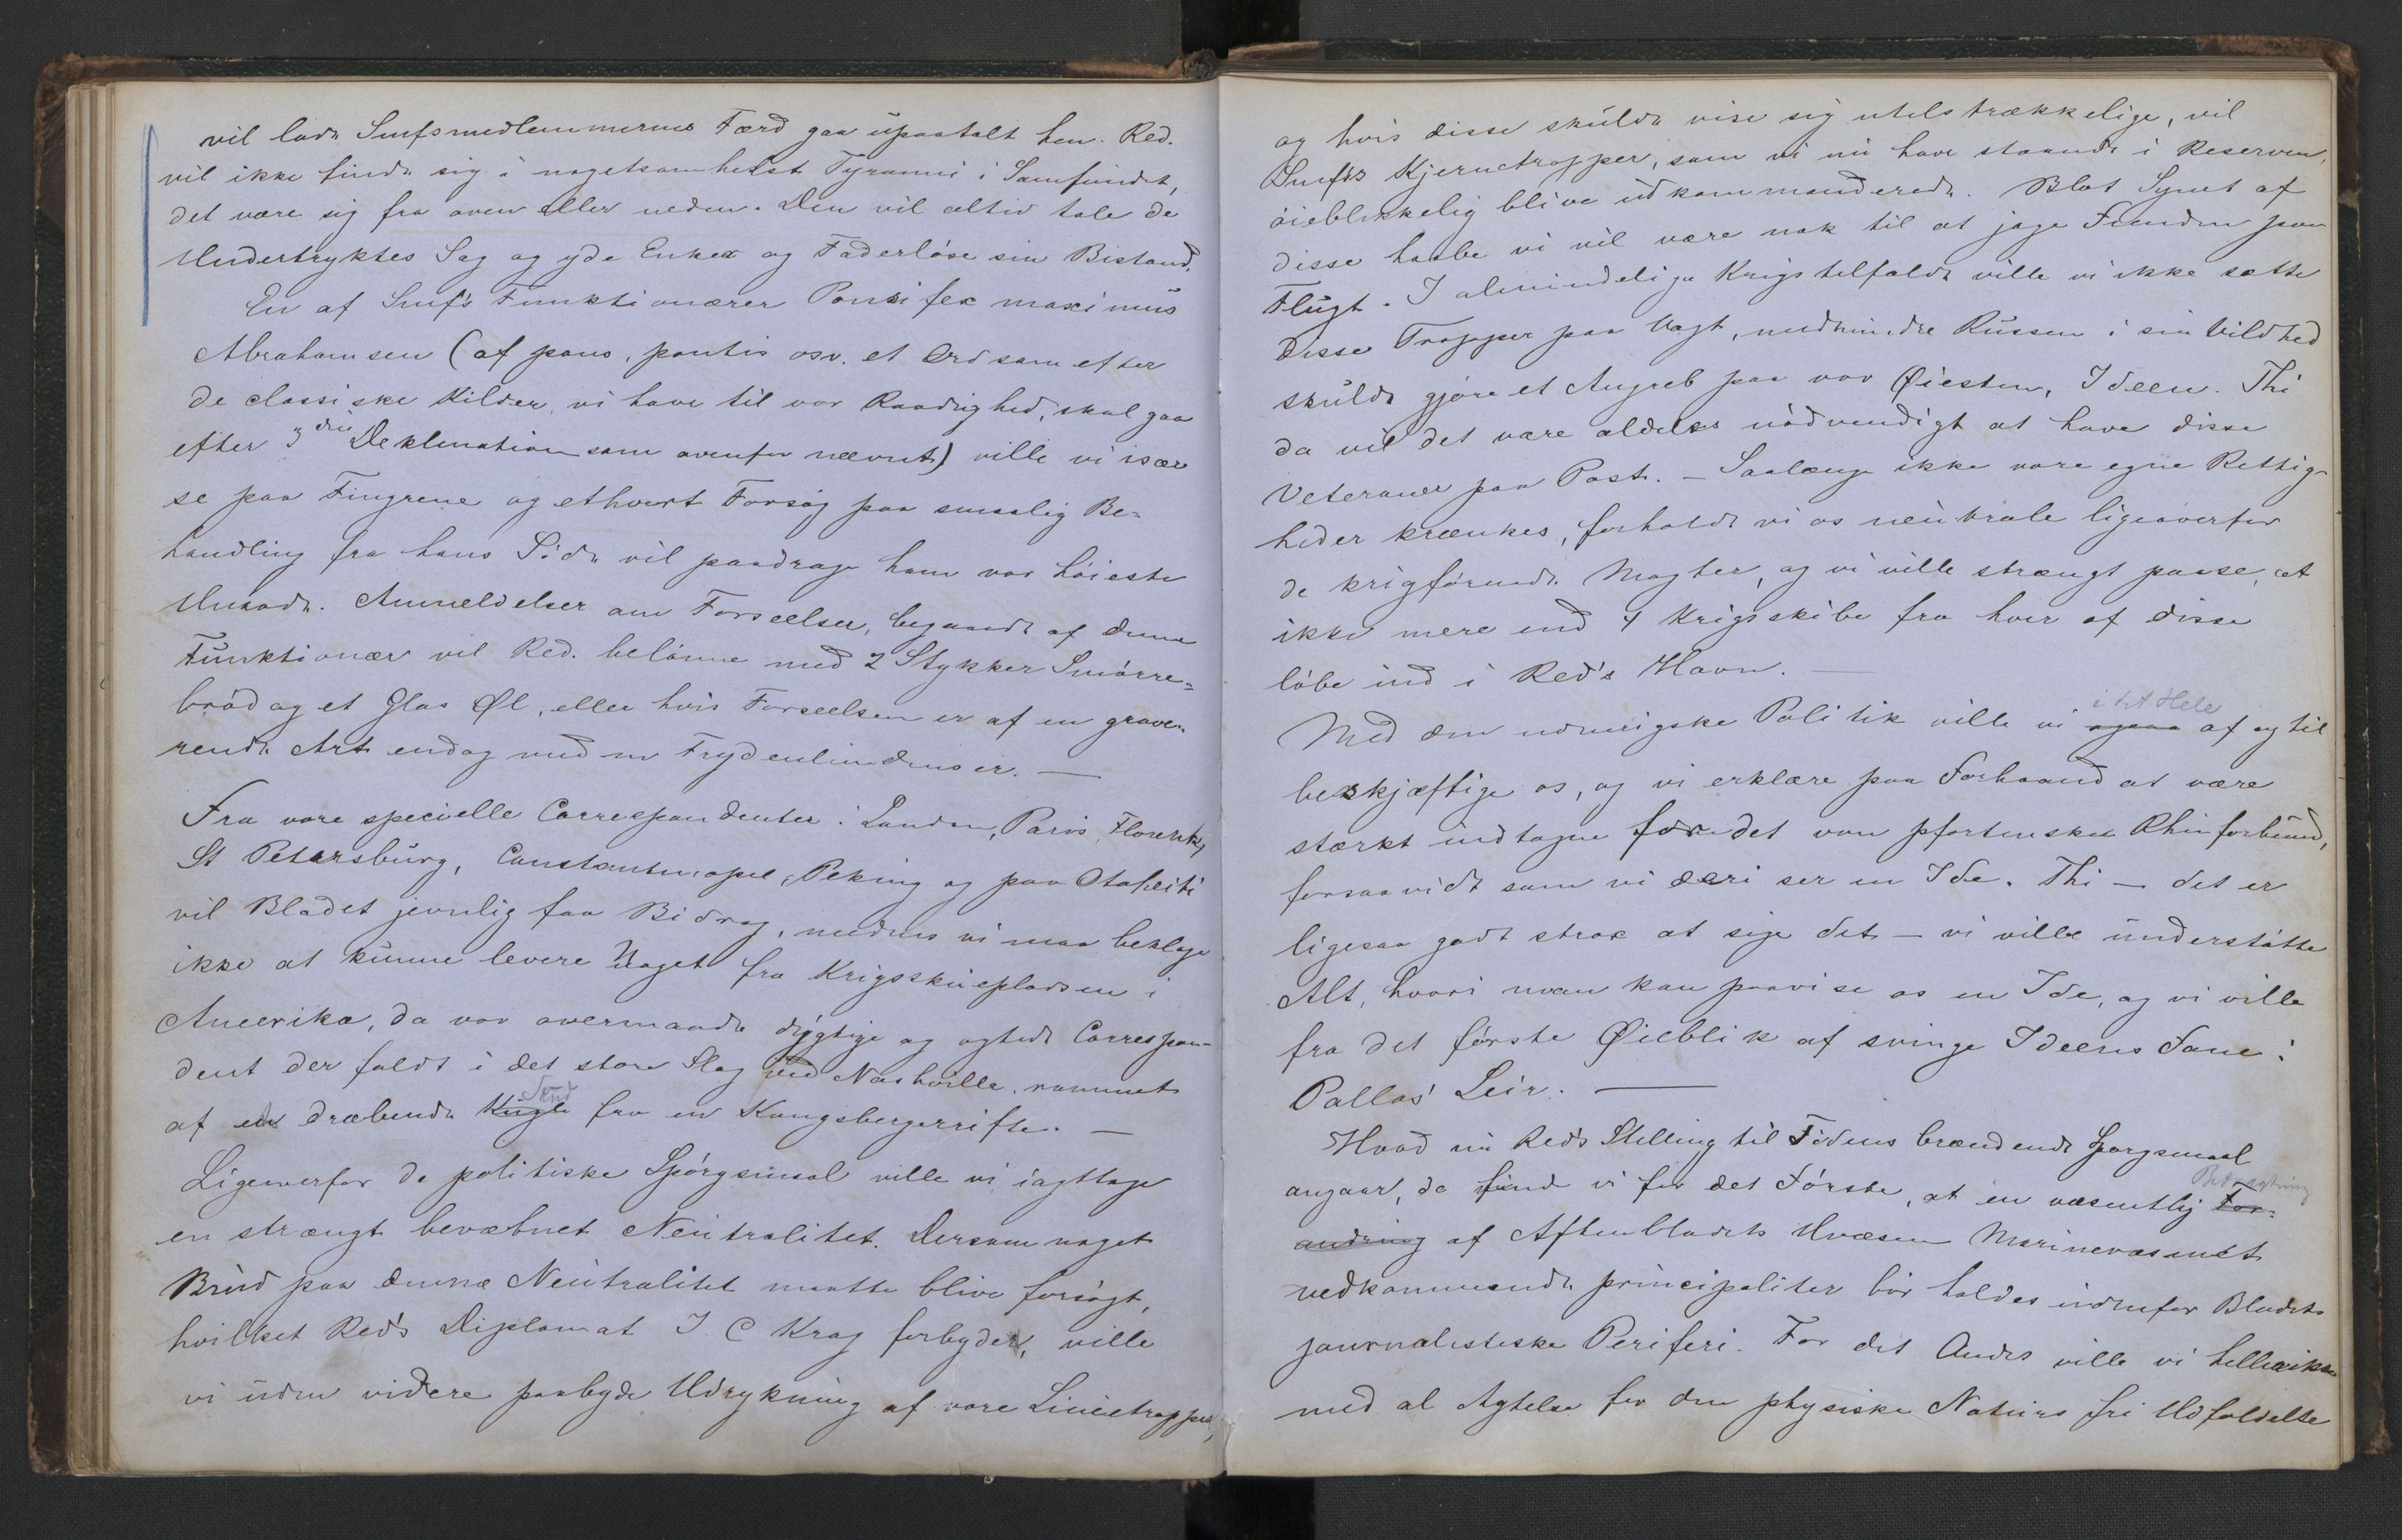 vil lade Smfsmedlemmernes Færd gaa upaatalt hen. Red.
vil ikke finde sig i nogetsomhelst Tyranni i Samfundet,
det være sig fra oven eller neden. Den vil altid tale de
Undertryktes Sag og yde Enker og Faderløse sin Bistand.
En af Smf's Funktionærer Ponsifex maximus
Abrahamsen (af pons, pontis osv. et Ord som efter
de classiske Kilder, vi have til vor Raadighed, skal gaa
efter 3die Deklination som ovenfor nævnt) ville vi især
se paa Fingrene og ethvert Forsøg paa smaalig Be-
handling fra hans Side vil paadrage ham vor høieste
Unaade. Anmeldelser om Forseelser, begaaede af denne
Funktionær vil Red. belønne med 2 Stykker Smørre-
brød og et Glas Øl, eller hvis Forseelsen er af en grave-
rende Art endog med en Frydenlundenser. —
Fra vore specielle Correspondenter i London, Paris, Florents,
St Petersburg, Constantinopel, Peking og paa Otaheiti
vil Bladet jevnlig faa Bidrag, medens vi maa beklage
ikke at kunne levere Noget fra Krigsskuepladsen i
Amerika, da vor overmaade dygtige og agtede Correspon-
dent der faldt i det store Slag ved Nashville, rammet
af en dræbende Kugle fra en Kongsbergerrifle. —
Ligeoverfor de politiske Spørgsmaal ville vi iagttage
en strængt bevæbnet Neutralitet. Dersom noget
Brud paa denne Neutralitet maatte blive forsøgt,
hvilket Red's Diplomat J. C Krag forbyder, ville
vi uden videre paabyde Udrykning af vore Linietropper,
og hvis disse skulde vise sig utilstrækkelige, vil
Smf's Kjernetropper, som vi nu have staaende i Reserven,
øieblikkelig blive udkommanderede. Blot Synet af
disse haabe vi vil være nok til at jage Fienden paa
Flugt. I almindelige Krigstilfælde ville vi ikke sætte
disse Tropper paa Vagt, medmindre Russen i sin Vildhed
skulde gjøre et Angreb paa vor Øiesten, Ideen. Thi
da vil det være aldeles nødvendigt at have disse
Veteraner paa Post. — Saalænge ikke vore egne Rettig-
heder krænkes, forholde vi os neutrale ligeoverfor
de krigførende Magter, og vi ville strængt passe, at
ikke mere end 4 Krigsskibe fra hver af disse
løbe ind i Red's Havn. —
i det Hele
Med den udenrigske Politik ville vi af og til
beskjæftige os, og vi erklære paa Forhaand at være
stærkt indtagne for det von pfortenske Rhinforbund,
forsaavidt som vi deri ser en Ide. Thi — det er
ligesaa godt strax at sige det — vi ville understøtte
Alt, hvori man kan paavise os en Ide, og vi ville
fra det første Øieblik af svinge Ideens Fane i
Pallas' Leir. —
Hvad nu Red's Stilling til Tidens brændende Spørgsmaal
angaar, da finde vi for det Første, at en væsentlig For-
Betragtning
andring af Aftenbladets Uvæsen Marinevæsenet
vedkommende principaliter bør holdes udenfor Bladets
journalistiske Periferi. For det Andet ville vi
med al Agtelse for den physiske Naturs fri Udfoldelse